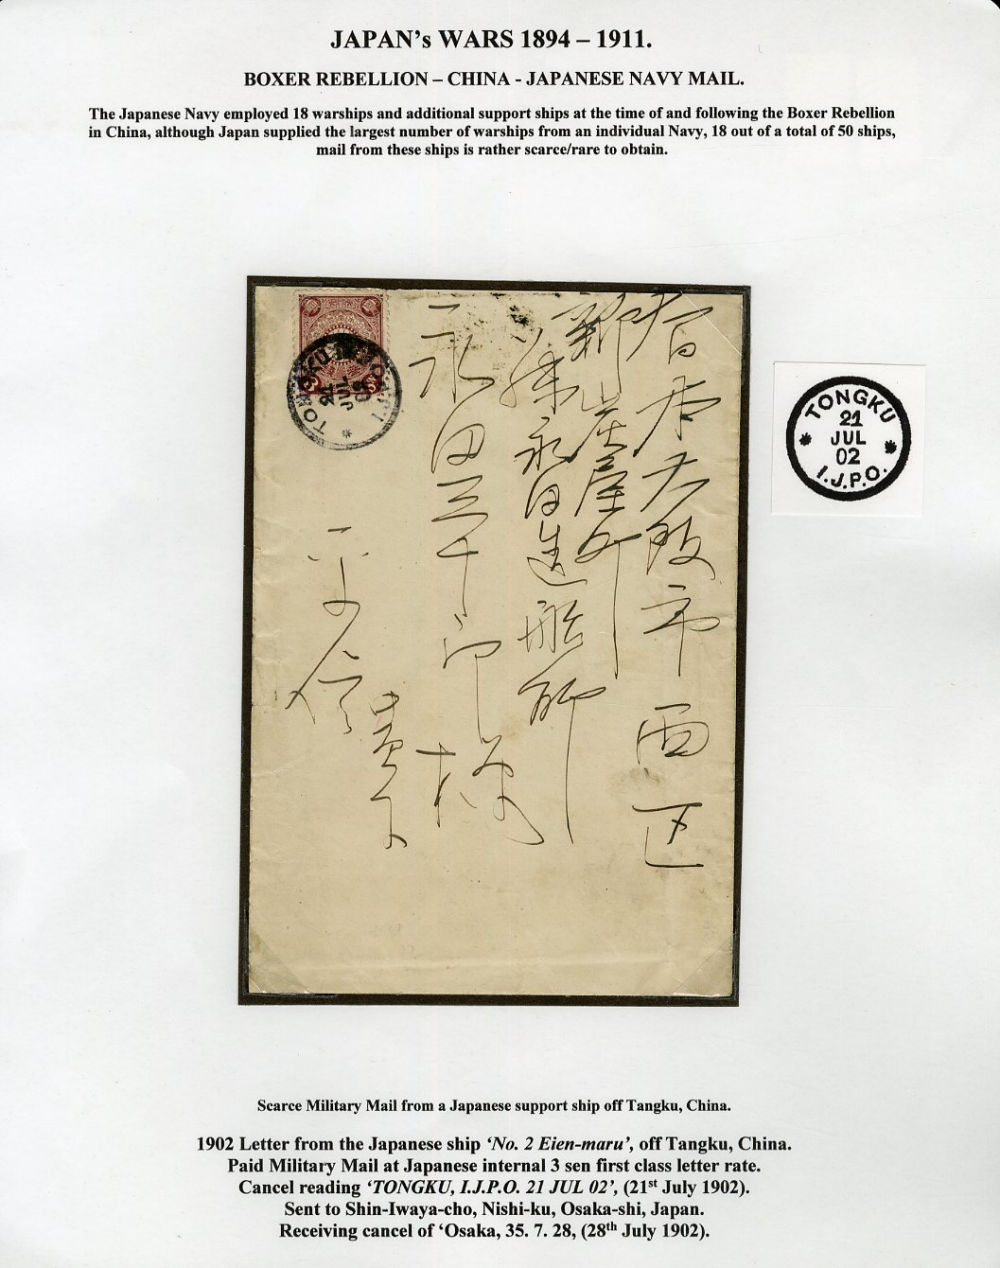 JAPAN's WARS 1894 – 1911.
BOXER REBELLION – CHINA - JAPANESE NAVY MAIL.
The Japanese Navy employed 18 warships and additional support ships at the time of and following the Boxer Rebellion
in China, although Japan supplied the largest number of warships from an individual Navy, 18 out of a total of 50 ships,
mail from these ships is rather scarce/rare to obtain.
大阪市西区
永田造船所
永田三十郎様
平信
TONGKU
21
JUL
02
I.J.P.O.
TONGKU
21
JUL
02
I.J.P.O.
Scarce Military Mail from a Japanese support ship off Tangku, China.
1902 Letter from the Japanese ship ‘No. 2 Eien-maru’, off Tangku, China.
Paid Military Mail at Japanese internal 3 sen first class letter rate.
Cancel reading ‘TONGKU, I.J.P.O. 21 JUL 02’, (21st July 1902).
Sent to Shin-Iwaya-cho, Nishi-ku, Osaka-shi, Japan.
Receiving cancel of ‘Osaka, 35. 7. 28, (28th July 1902).